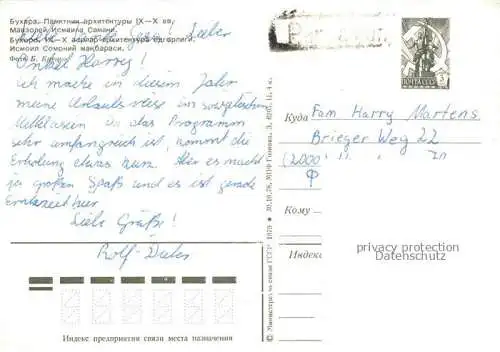 Бухара. Памятник архитектуры IX—X вв.
Мавзолей Исмаила Самани.
Бухоро. IX—X асрлар архитектура ёдгорлиги.
Исмоил Сомоний мақбараси.
Фото Б.
Liebe Tante ! Lieber
Onkel Harry!
ich mache in diesem Jahr
meine Urlaubsreise im sowjetischen
Mittelasien. Da das Programm
sehr umfangreich ist, kommt die
Erholung etwas kurz. Aber es macht
mir großen Spaß und es ist gerade
Erntezeit hier.
Liebe Grüße!
Rolf-Dieter
Индекс предприятия связи места назначения
© Министерство связи СССР 1978
ПОЧТА СССР
Par avion
Куда Fam Harry Martens
Brieger Weg 22
(2000
Кому
privacy protection
Datenschutz
Индекс